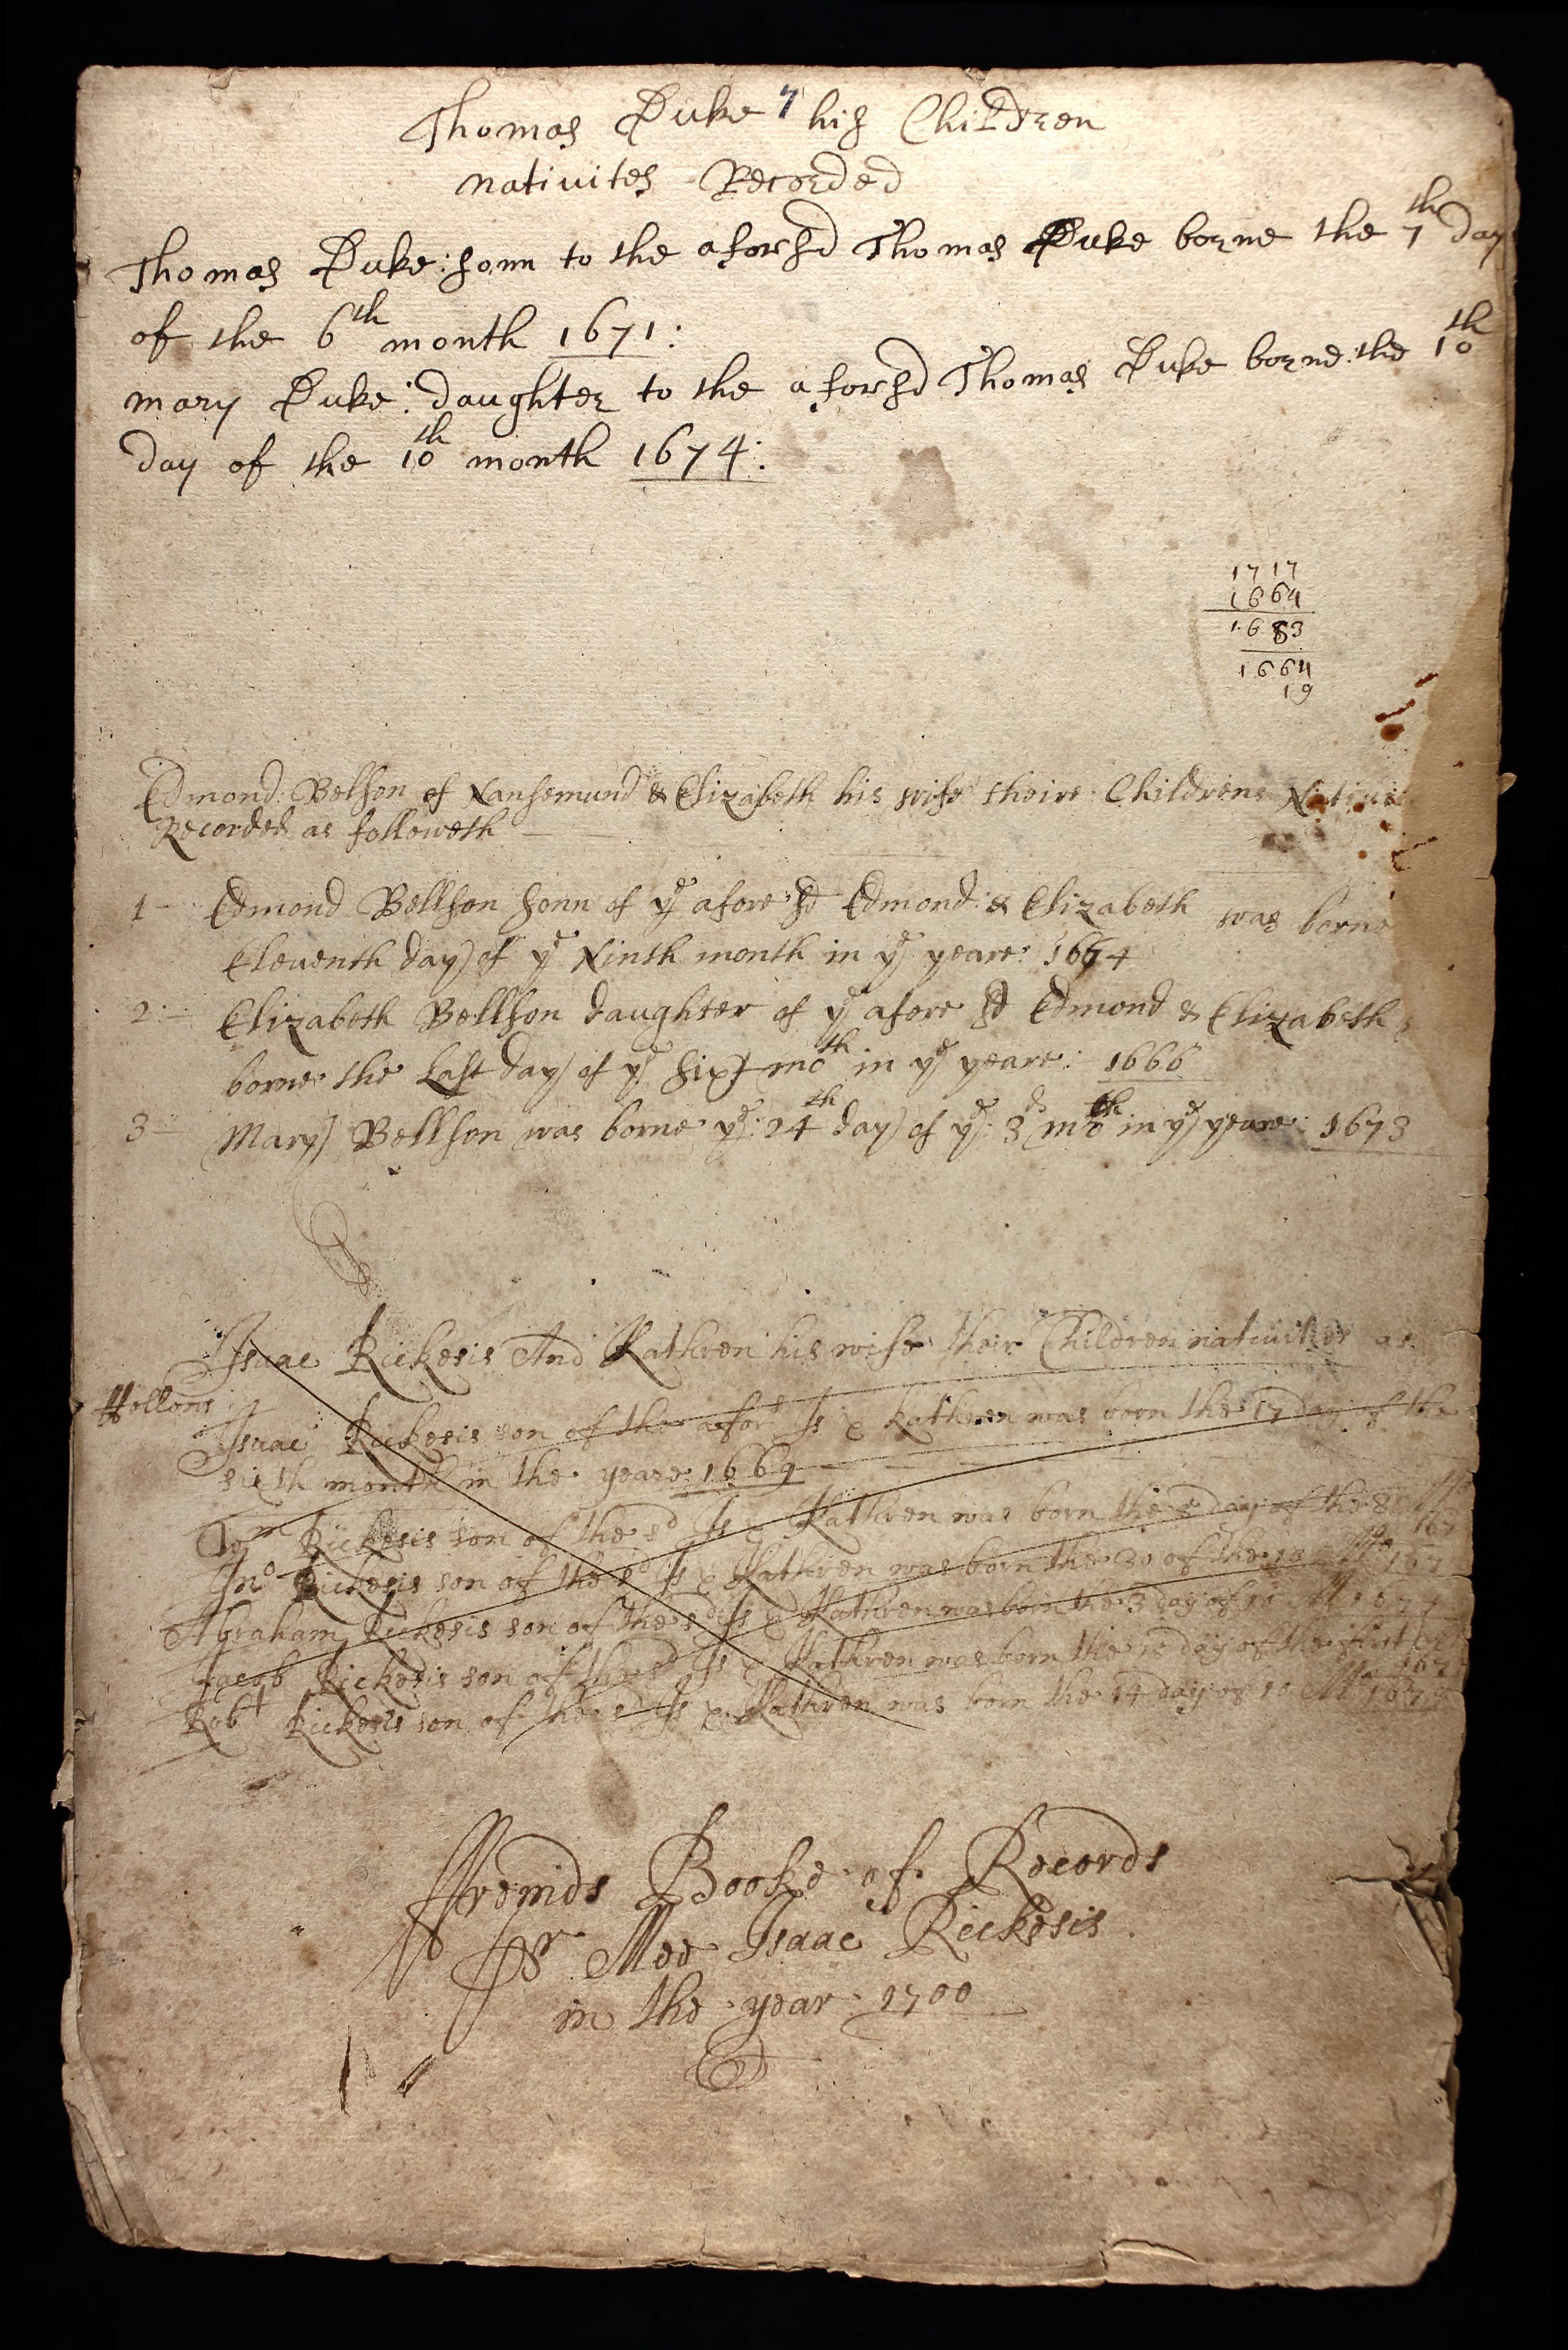 Thomas Duke 7 his Children
nativites Recorded
Thomas Duke: sonn to the aforsd Thomas Duke borne the 7th day
of the 6th month 1671:
mary Duke: daughter to the aforsd Thomas Duke borne: the 10th
day of the 10th month 1674:
1717
1664
1683
1664
19
Edmond Belson of Nansemund & Elizabeth his wife theire Childrens
Recorded as followeth
1 Edmond Bellson sonn of ye afore sd Edmond & Elizabeth was borne
Eleventh day of ye Ninth month in ye yeare: 1664
2 Elizabeth Bellson daughter of ye afore sd Edmond & Elizabeth
borne the Last day of ye sixt moth in ye yeare: 1666
3 Mary Bellson was borne ye: 24th day of ye: 3d moth in ye yeare: 1673
Isaac Rickesis And Kathren his wife their Children nativities as
ffollows
Isaac Rickesis son of the aford Is & Kathren was born the 17 day of the
sixth month in the yeare 1669
Rickesis son of the sd Is & Kathren was born the day of the 8 Mo
167
Jno Rickesis son of the sd Is & Kathren was born the 30 of the 10 Mo 167
Abraham Rickesis son of the sd Is & Kathren was born the 3 day of 10 M
Jacob Rickesis son of the sd Is & Kathren was born the day of the first
Robt Rickesis son of the sd Is & Kathren was born the 14 day of 10 Mo 167
ffremds Booke of Records
Pr Mee Isaac Rickesis
in the year 1700